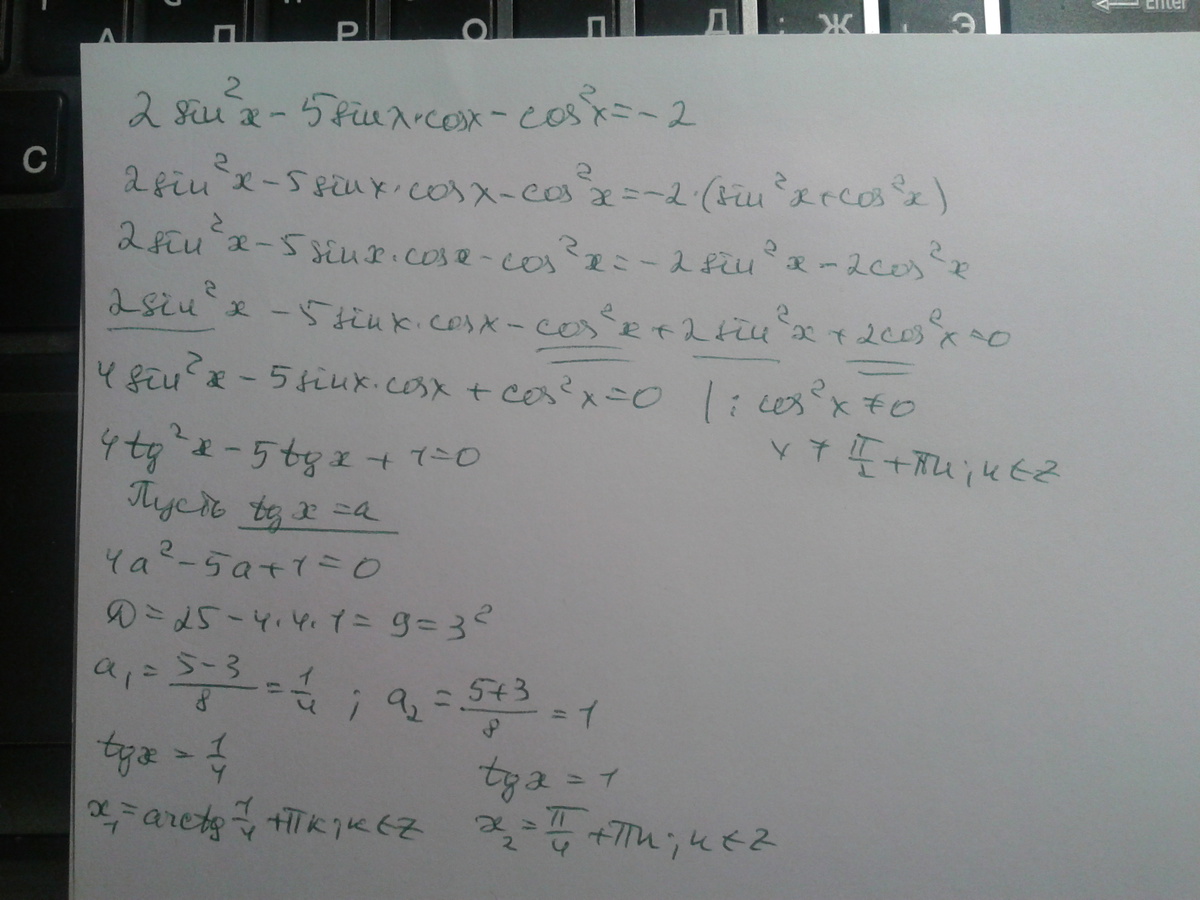 А П Р О Л Д ; Ж , Э Enter
С
2 sin²x − 5 sin x · cos x − cos²x = −2
2 sin²x − 5 sin x · cos x − cos²x = −2 · (sin²x + cos²x)
2 sin²x − 5 sin x · cos x − cos²x = −2 sin²x − 2cos²x
2 sin²x − 5 sin x · cos x − cos²x + 2 sin²x + 2cos²x = 0
4 sin²x − 5 sin x · cos x + cos²x = 0 | : cos²x ≠ 0
4 tg²x − 5 tg x + 1 = 0 x ≠ π/2 + πn; n ∈ Z
Пусть tg x = a
4a² − 5a + 1 = 0
D = 25 − 4 · 4 · 1 = 9 = 3²
a₁ = (5−3)/8 = 1/4 ; a₂ = (5+3)/8 = 1
tg x = 1/4 tg x = 1
x₁ = arctg 1/4 + πk; k ∈ Z x₂ = π/4 + πn; n ∈ Z